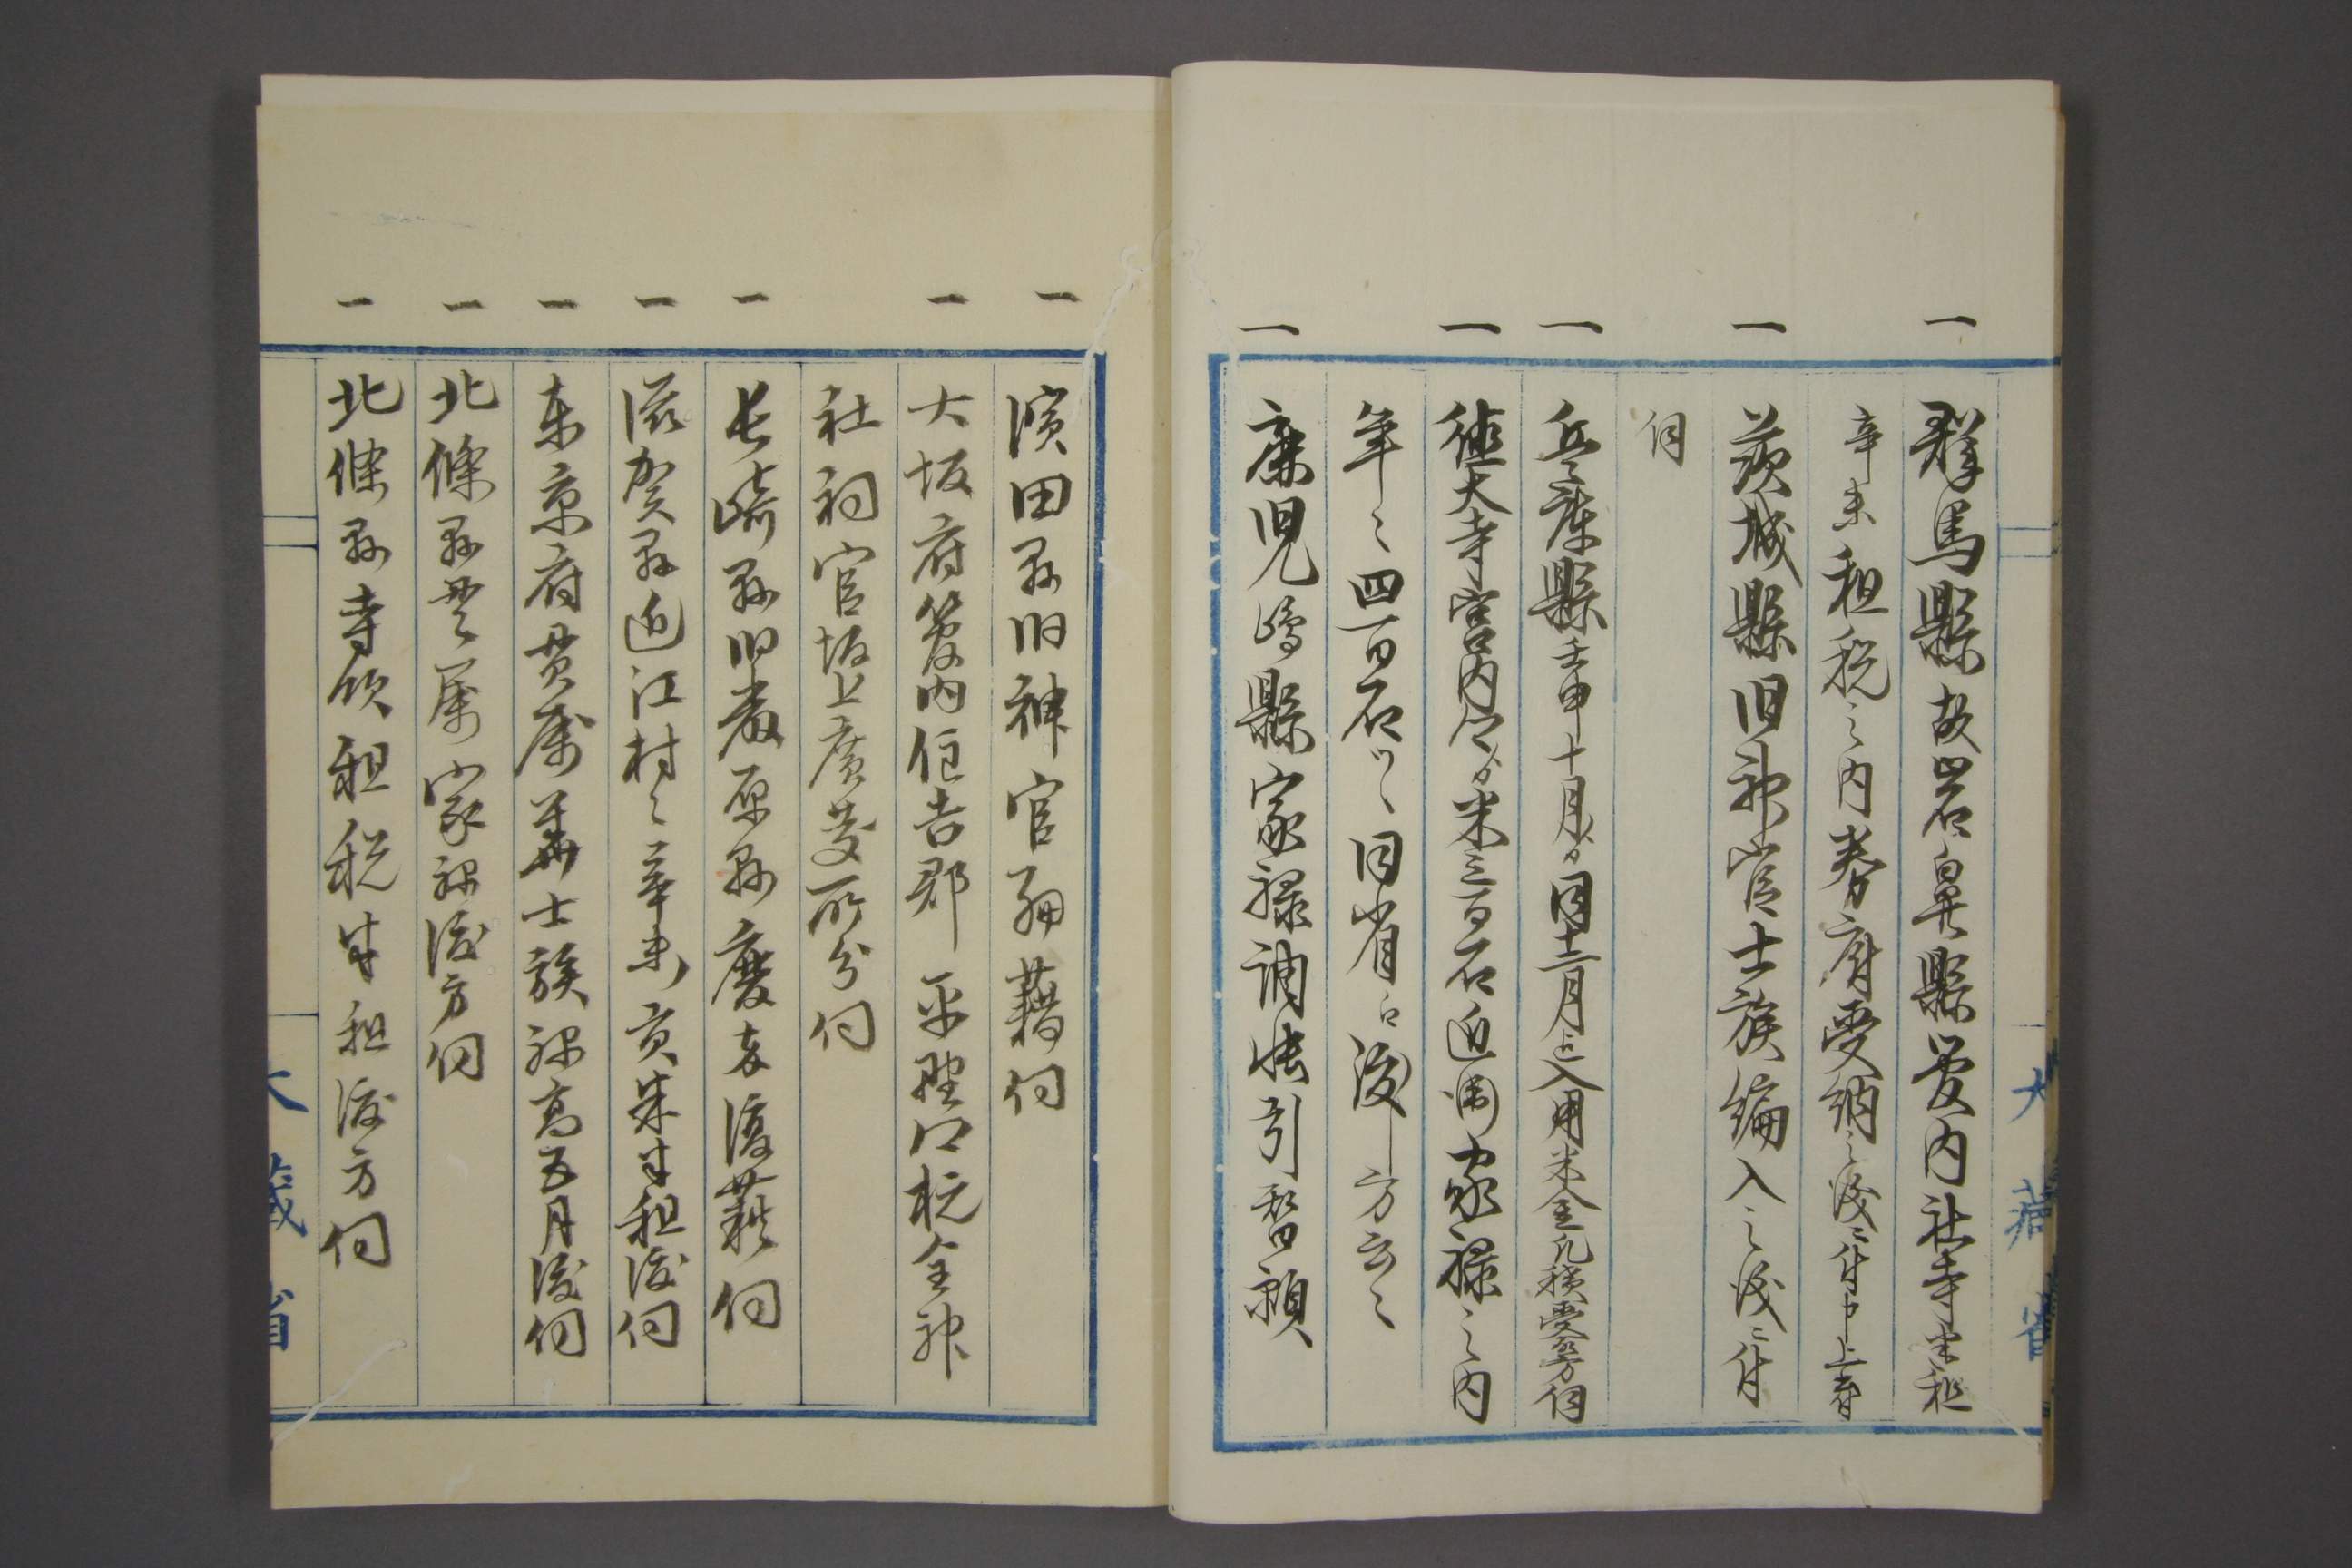 一 群馬縣故岩鼻縣管内社寺半租
辛未租税之内券府受納之儀ニ付申上書
一 茨城縣旧神官士族編入之儀ニ付
伺
一 兵庫縣壬申十月ゟ同十二月迄入用米金凡積受取方伺
一 徳大寺宮内卿ゟ米三百石近衛家禄之内
年々四百石ツヽ同省ゟ渡し方云々
一 鹿児嶋縣家禄調帳引替願
大蔵省
一 濱田縣旧神官編藉伺
一 大坂府管内住吉郡平野口杭全神
社祠官坂上廣茂所分伺
一 長崎縣旧厳原縣慶去復藉伺
一 滋賀縣迫江村々辛未貢米半租渡伺
一 東京府貫属華士族禄高五月渡伺
一 北條縣貫属家禄渡方伺
一 北條縣寺領租税半租渡方伺
大蔵省